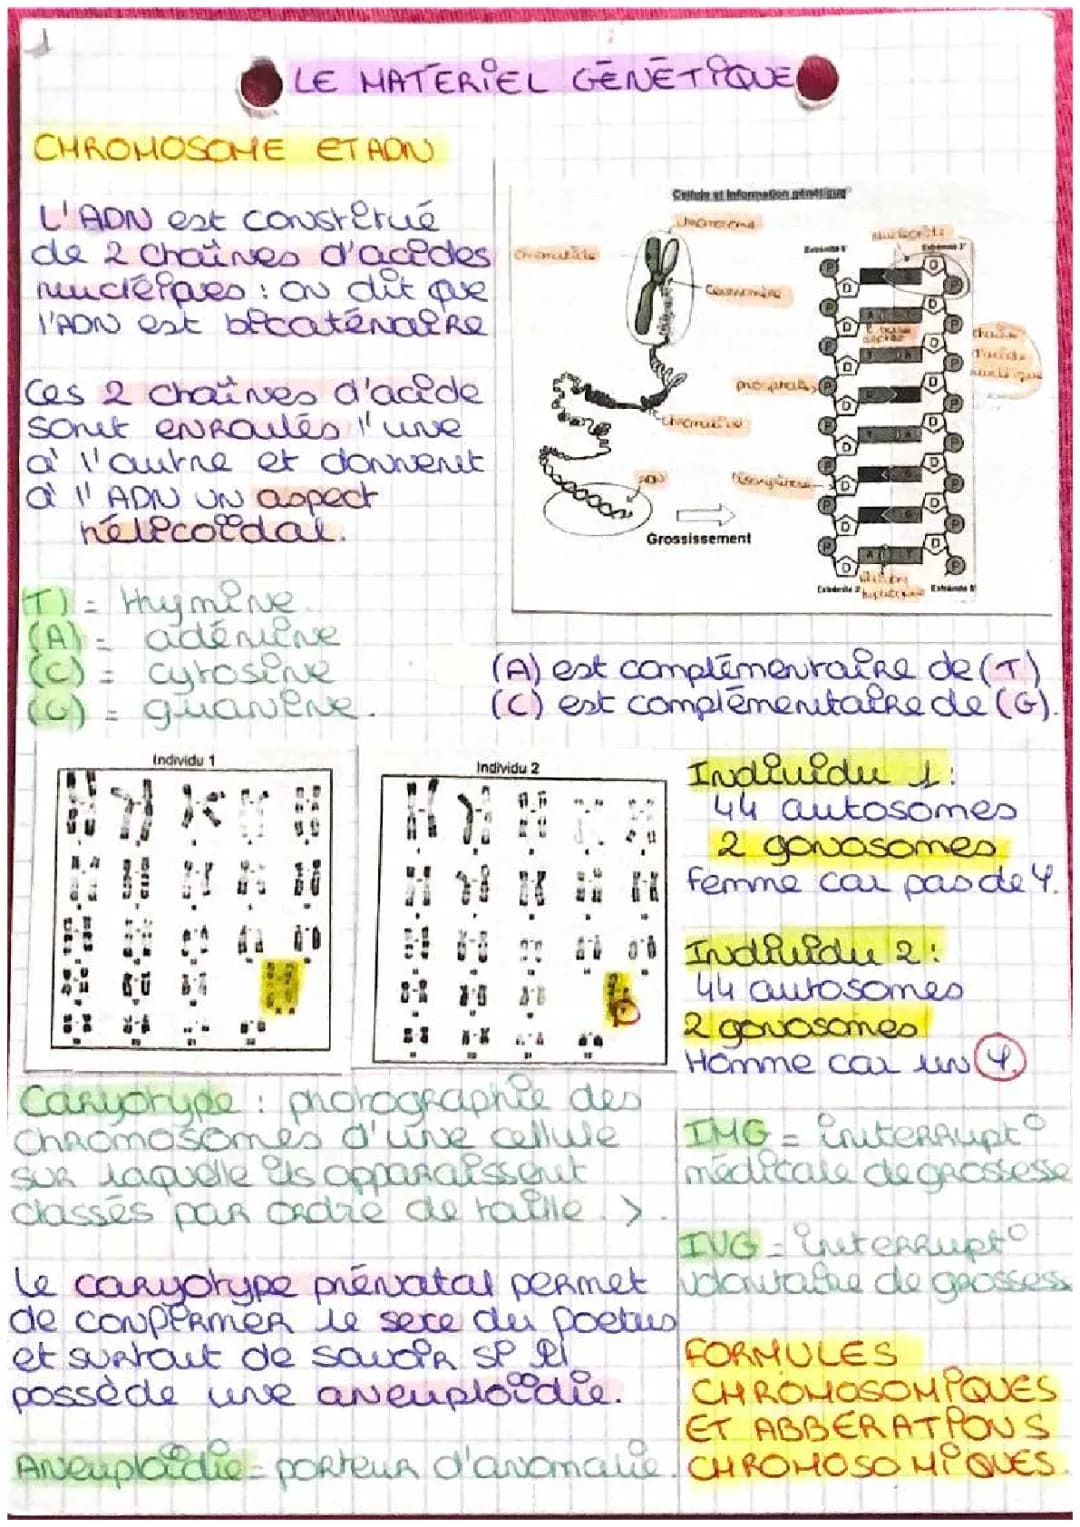 LE MATERIEL GÉNÉTIQUE
CHROMOSOME ET ADN
L'ADN est constitué
de 2 chaînes d'acides
nucléiques : on dit que
l'ADN est bicaténaire
Ces 2 chaînes d'acide
sont enroulés l'une
à l'autre et donnent
à l'ADN un aspect
hélicoïdal.
Cellule et information génétique
chromosome
chromatide
centromère
nucléotide
Extrémité 5'
Extrémité 3'
phosphate
chromatine
chaîne
d'acide
nucléique
ADN
Désoxyribose
Grossissement
Extrémité 3'
Extrémité 5'
(T) = thymine
(A) = adénine
(C) = cytosine
(G) = guanine.
(A) est complémentaire de (T)
(C) est complémentaire de (G).
Individu 1
Individu 2
Individu 1 :
44 autosomes
2 gonosomes
femme car pas de Y.
Individu 2 :
44 autosomes
2 gonosomes
Homme car un Y.
Caryotype : photographie des
chromosomes d'une cellule
sur laquelle ils apparaissent
classés par ordre de taille >.
Le caryotype prénatal permet
de confirmer le sexe du foetus
et surtout de savoir si il
possède une aneuploïdie.
Aneuploïdie = porteur d'anomalie.
IMG = interrupt°
médicale de grossesse
IVG = interrupt°
volontaire de grossess
FORMULES
CHROMOSOMIQUES
ET ABBÉRATIONS
CHROMOSOMIQUES.